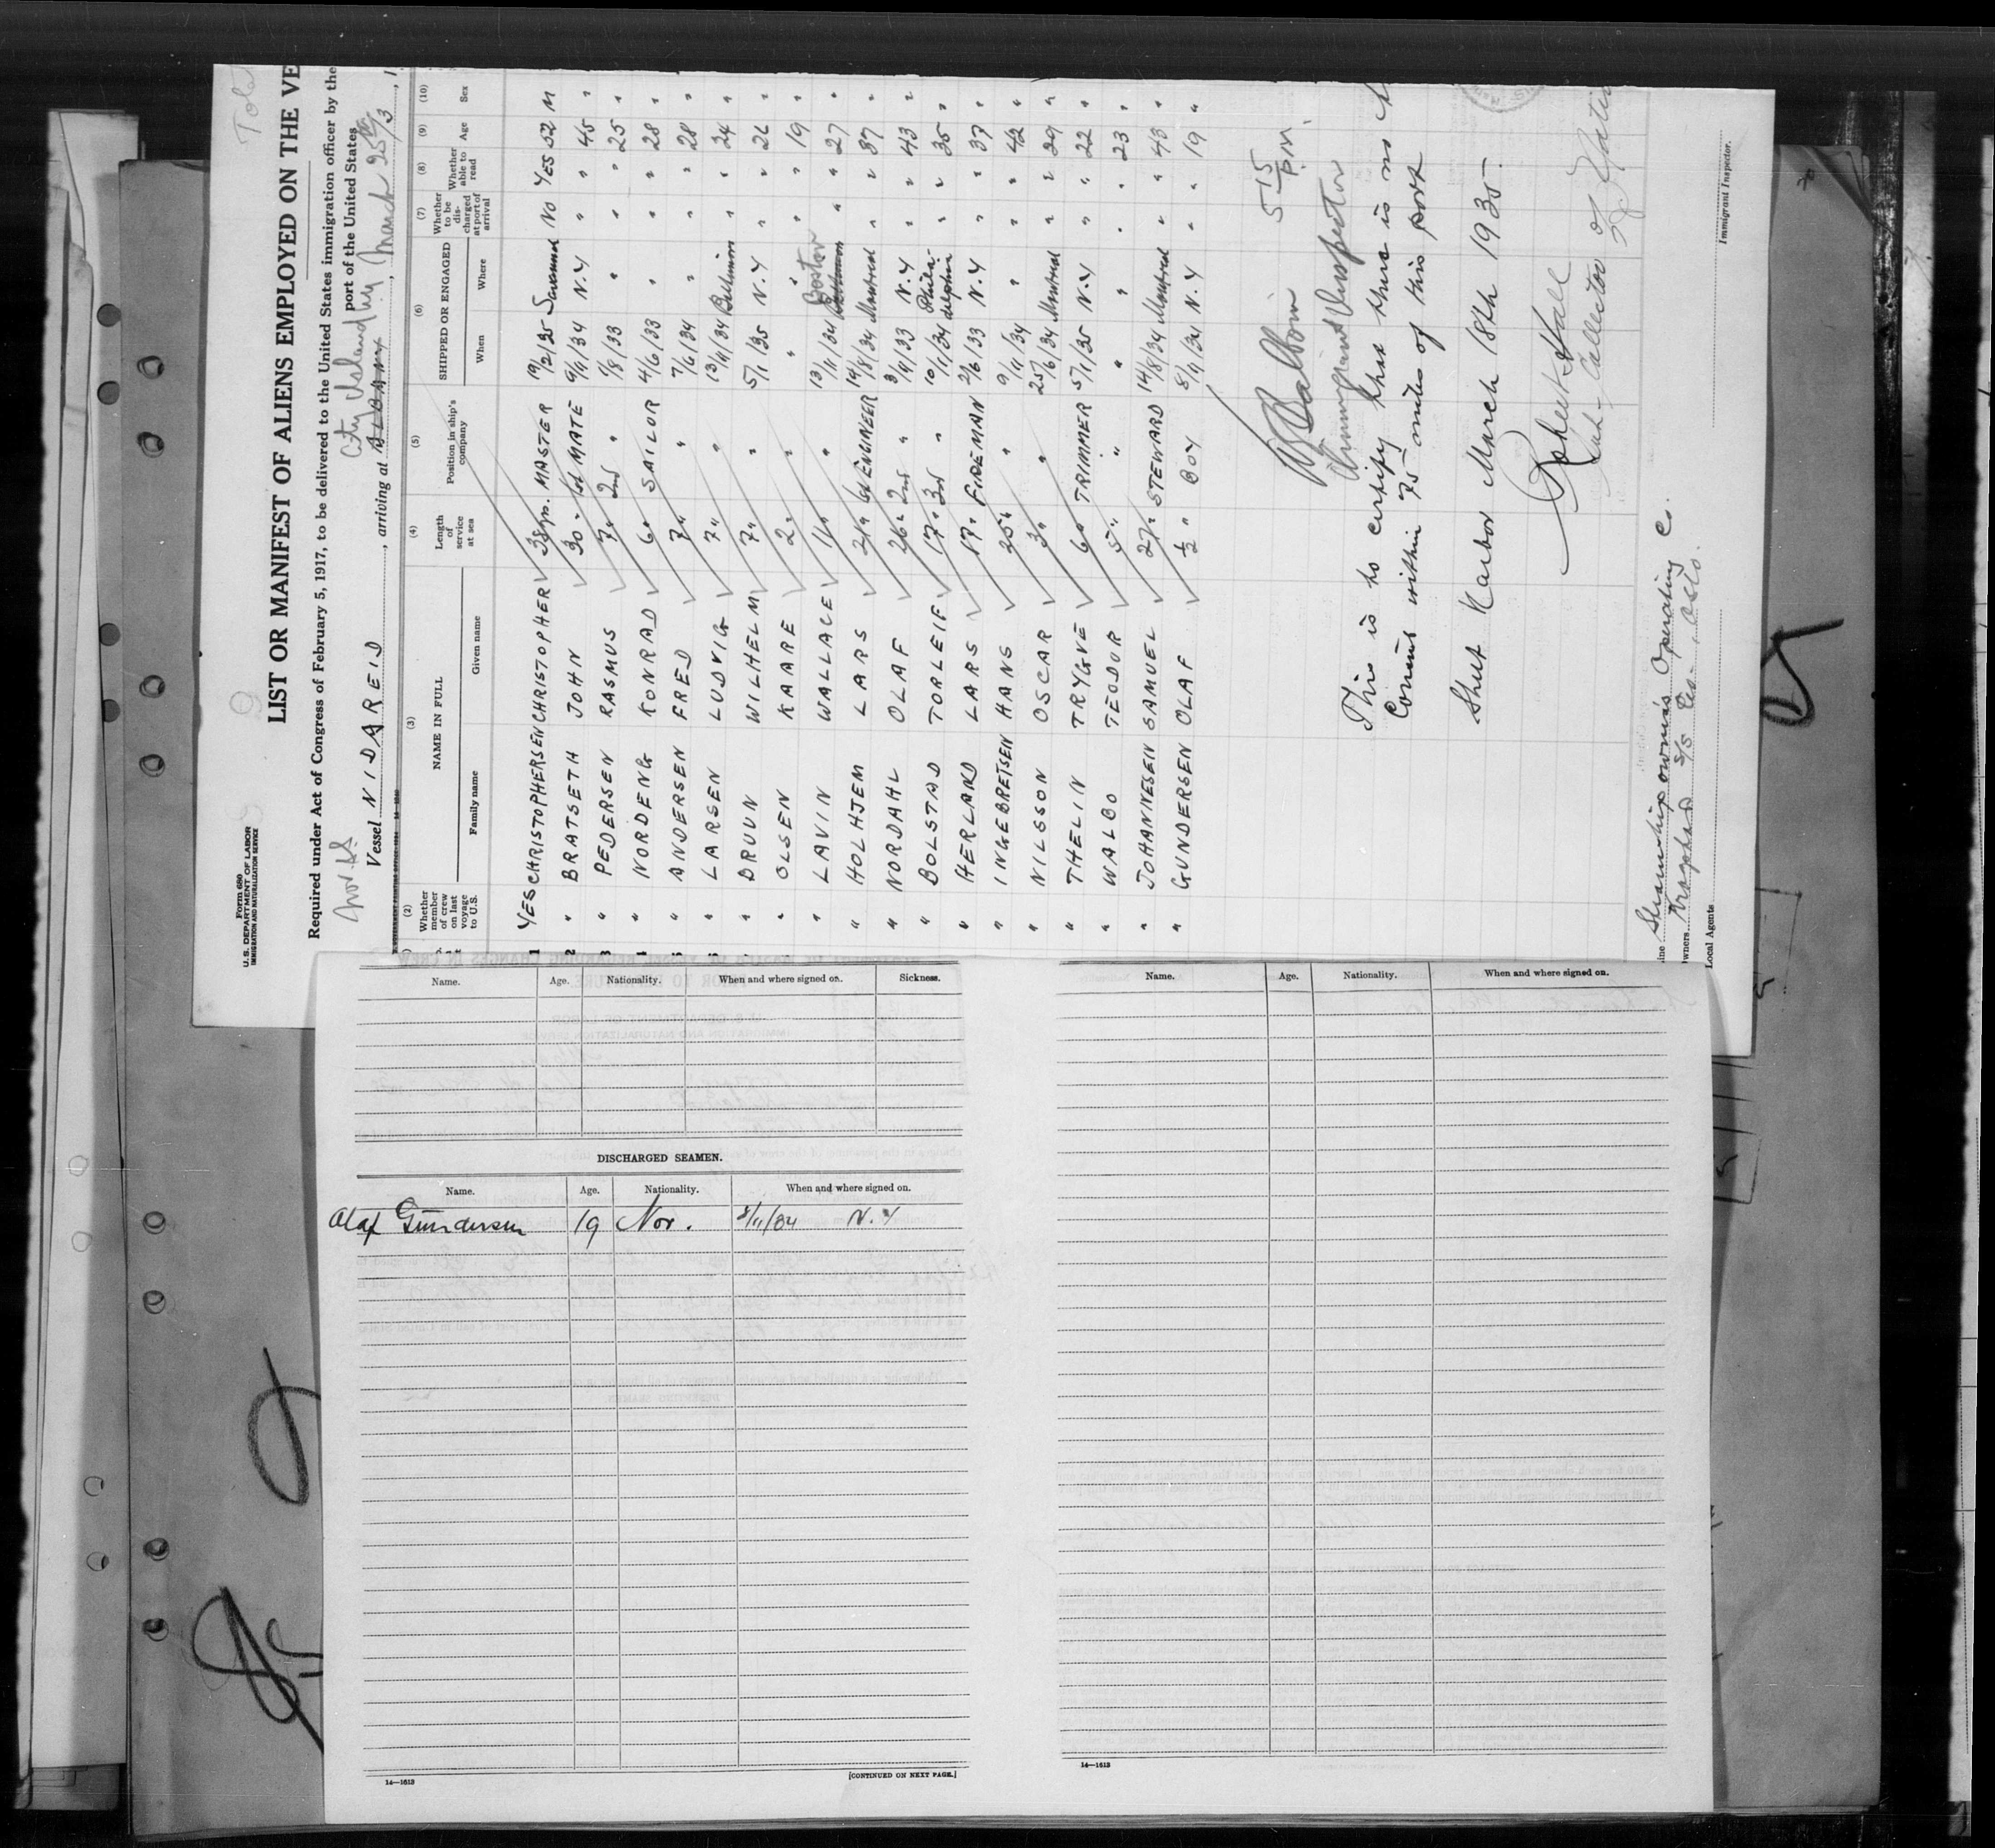 Form 680
U.S. DEPARTMENT OF LABOR
IMMIGRATION AND NATURALIZATION SERVICE
LIST OR MANIFEST OF ALIENS EMPLOYED ON THE VE
Required under Act of Congress of February 5, 1917, to be delivered to the United States immigration officer by the
port of the United States
Nor. SS
Vessel NIDAREID, arriving at ALBANY City Island N.Y., March 25th/3, 1
(2) (3) (4) (5) (6) (7) (8) (9) (10)
Whether member of crew on last voyage to U.S. NAME IN FULL Family name Given name Length of service at sea Position in ship's company SHIPPED OR ENGAGED When Where Whether to be discharged at port of arrival Whether able to read Age Sex
1 YES CHRISTOPHERSEN CHRISTOPHER 38 yrs. MASTER 19/2/35 Savannah No YES 52 M
2 " BRATSETH JOHN 30 " 1st MATE 9/11/34 N.Y " " 45 "
3 " PEDERSEN RASMUS 7 " 2nd " 1/8/33 " " " 25 "
4 " NORDENG KONRAD 6 " SAILOR 4/6/33 " " " 28 "
5 " ANDERSEN FRED 7 " " 7/6/34 " " " 28 "
" LARSEN LUDVIG 7 " " 13/11/34 Baltimore " " 24 "
" BRUUN WILHELM 7 " " 5/1/35 N.Y " " 26 "
" OLSEN KAARE 2 " " " " " " 19 "
" LAVIN WALLACE 11 " " 13/11/34 Boston " " 27 "
" HOLHJEM LARS 21 " 1st ENGINEER 14/8/34 Montreal " " 37 "
" NORDAHL OLAF 26 " 2nd " 3/9/33 N.Y " " 43 "
" BOLSTAD TORLEIF 17 " 3rd " 10/1/34 Philadelphia " " 35 "
" HERLAND LARS 17 " FIREMAN 2/6/33 N.Y " " 37 "
" INGEBRETSEN HANS 25 " " 9/11/34 " " " 42 "
" NILSSON OSCAR 3 " " 25/6/34 Montreal " " 29 "
" THELIN TRYGVE 6 " TRIMMER 5/1/35 N.Y " " 22 "
" WALBO TEODOR 5 " " " " " " 23 "
" JOHANNESEN SAMUEL 27 " STEWARD 14/8/34 Montreal " " 43 "
" GUNDERSEN OLAF 1/2 " BOY 8/11/34 N.Y " " 19 "
5 15 P.M.
Immigrant Inspector
This is to certify that there is no
Consul within 75 miles of this port
Sheet Harbor March 18th 1935.
Robert Hall
Sub-Collector of
Line Steamshipowners Operating Co.
Owners S/S Co. Oslo.
Local Agents
Immigrant Inspector.
Name. Age. Nationality. When and where signed on. Sickness.
DISCHARGED SEAMEN.
Name. Age. Nationality. When and where signed on.
Olaf Gundersen 19 Nor. 8/11/34 N.Y
14—1613
[CONTINUED ON NEXT PAGE.]
Name. Age. Nationality. When and where signed on.
14—1613